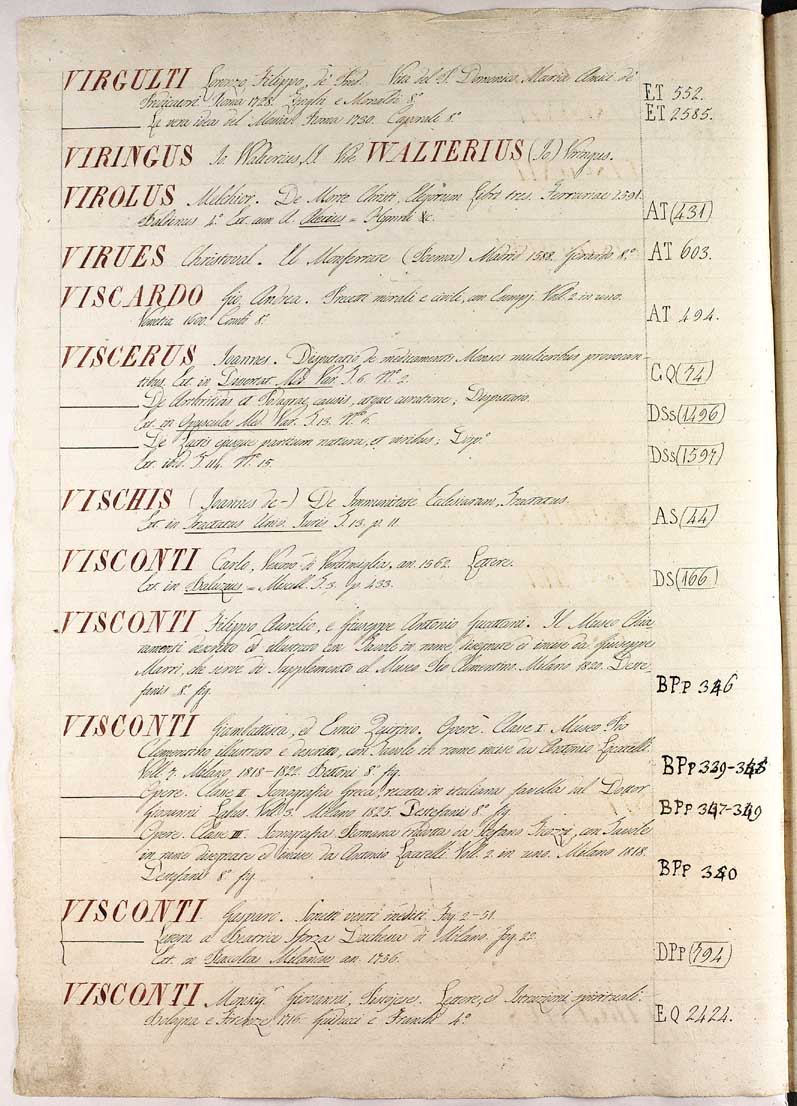 VIRGULTI Lorenzo Filippo, de' Ind. Vita del S. Domenico Maria Amici di
Roma 1728. Zinghi e Monaldi 8°
ET 552.
La vera idea del Roma 1730. Caproli 8°
ET 2585.
VIRINGUS Jo Walterius, V Vide WALTERIUS (Jo) Viringus.
VIROLUS Melchior. De Morte Christi, Elegiarum Libri tres. Ferrariae 1591.
Baldinus 4° Est cum Alexius = &c.
AT (431)
VIRUES Christoval. El Monserrate (Poema) Madrid 1588. Gerardo 8°
AT 603.
VISCARDO Gio. Andrea. Precetti morali e civili, Voll. 2 in uno.
Venetia 1600. Conti 8°
AT 494.
VISCERUS Joannes. Disputatio de medicamentis Menses mulieribus provocan-
tibus. Est. in Med. Var. T. 6. N° 2.
CQ (74)
De Arthritidis et Podagrae causis, atque curatione; Disputatio.
Est. in Opuscula Med. Var. T. 13. N° 6.
DSs (1496)
De ejusque partium natura, et viribus; Disp°
Est. ibid. T. 114. N° 15.
DSs (1597)
VISCHIS (Joannes de-) De Immunitate Ecclesiarum, Tractatus.
Est. in Tractatus Univ. Juris T. 13. p. 11.
AS (44)
VISCONTI Carlo, Vescovo di Ventimiglia, an. 1562. Lettere.
Est. in Baluzius = Miscell. T. 3. p. 433.
DS (166)
VISCONTI Filippo Aurelio, e Giuseppe Antonio Guattani. Il Museo Chia-
ramonti descritto ed illustrato con Tavole in rame, disegnate ed incise da Giuseppe
Marri, che serve di Supplemento al Museo Pio Clementino. Milano 1820. Deste-
fanis 8° fig.
BPp 346
VISCONTI Giambattista, ed Ennio Quirino. Opere. Clase I. Museo Pio
Clementino illustrato e descritto, con Tavole in rame incise da Antonio Locatelli.
Voll. 7. Milano, 1818-1822. Bettoni 8° fig.
BPp 339-345
Opere. Clase II. Iconografia Greca, recata in italiana favella dal Dottor
Giovanni Labus. Voll. 3. Milano 1825. Destefanis 8° fig.
BPp 347-349
Opere. Clase III. Iconografia Romana tradotta da Stefano Ticozzi, con Tavole
in rame disegnate ed incise da Antonio Locatelli. Voll. 2 in uno. Milano 1818.
Destefanis 8° fig.
BPp 350
VISCONTI Gasparo. Sonetti venti inediti. Fog. 2-51.
Lettera a Beatrice Sforza Duchessa di Milano. Fog. 22.
Est. in Raccolta Milanese an. 1756.
DPp (794)
VISCONTI Monsig.r Giovanni, Lettere, ed Istruzioni spirituali.
Bologna e Firenze 1716. Guiducci e Franchi 4°
EQ 2424.